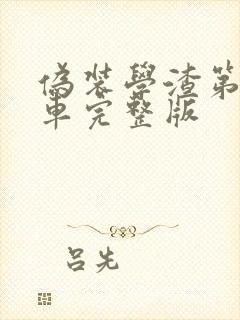 偽裝學渣第
車完整版
吕先